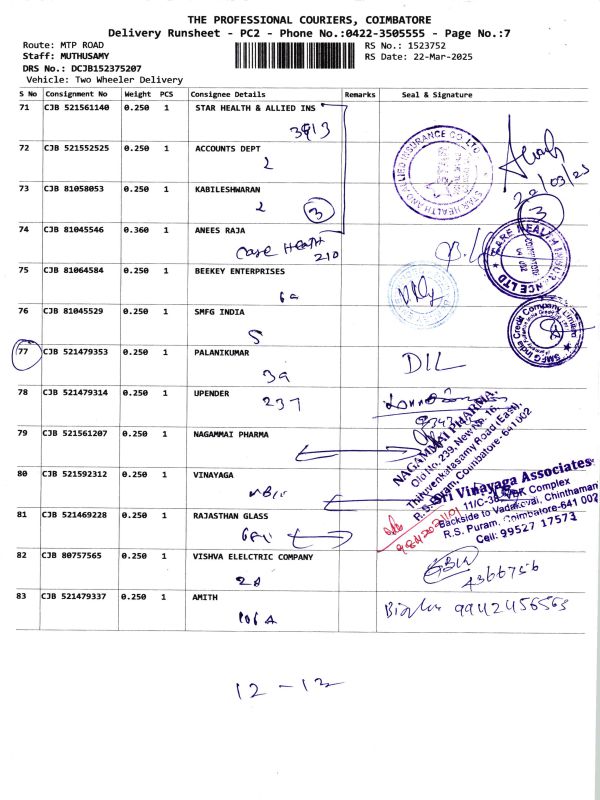 THE PROFESSIONAL COURIERS, COIMBATORE
Delivery Runsheet - PC2 - Phone No.:0422-3505555 - Page No.:7
Route: MTP ROAD RS No.: 1523752
Staff: MUTHUSAMY RS Date: 22-Mar-2025
DRS No.: DCJB152375207
Vehicle: Two Wheeler Delivery
S No Consignment No Weight PCS Consignee Details Remarks Seal & Signature
71 CJB 521561140 0.250 1 STAR HEALTH & ALLIED INS
3913
STAR HEALTH AND ALLIED INSURANCE CO LTD
72 CJB 521552525 0.250 1 ACCOUNTS DEPT
2
22/03/25
73 CJB 81058053 0.250 1 KABILESHWARAN
2 3
3
74 CJB 81045546 0.360 1 ANEES RAJA
Care Health
210
CARE HEALTH INSURANCE LTD
75 CJB 81064584 0.250 1 BEEKEY ENTERPRISES
6a
76 CJB 81045529 0.250 1 SMFG INDIA
5
SMFG India Credit Company Limited
77 CJB 521479353 0.250 1 PALANIKUMAR
3a
DIL
78 CJB 521479314 0.250 1 UPENDER
237
79 CJB 521561207 0.250 1 NAGAMMAI PHARMA
NAGAMMAI PHARMA,
Old No. 239, New No. 16,
Thiruvenkatasamy Road (East),
R.S. Puram, Coimbatore-641002
80 CJB 521592312 0.250 1 VINAYAGA
Sri Vinayaga Associates
11/C-3 Complex
Backside to Vadakovai, Chinthamani
R.S. Puram, Coimbatore-641 002
Cell: 99527 17573
81 CJB 521469228 0.250 1 RAJASTHAN GLASS
82 CJB 80757565 0.250 1 VISHVA ELELCTRIC COMPANY
2A
4366756
83 CJB 521479337 0.250 1 AMITH
106A
9942456563
12 - 12